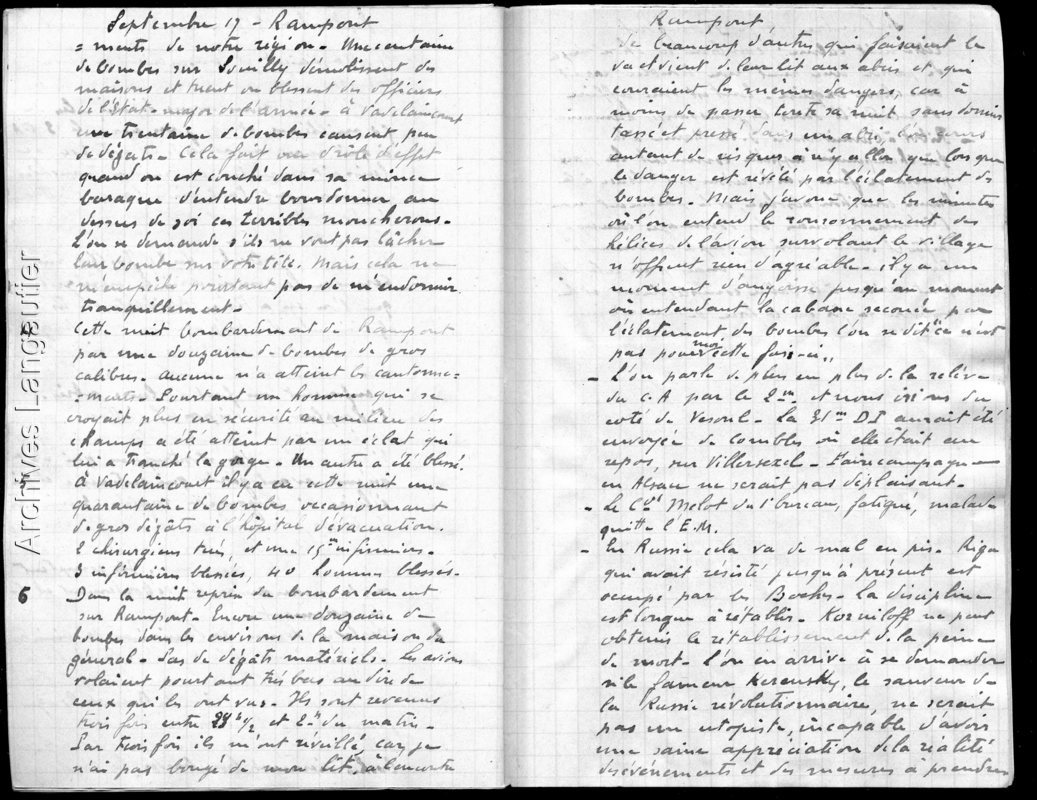 Septembre 17 - Rampont
= ments de notre région - Une centaine
de bombes sur Souilly démolissent des
maisons et tuent ou blessent des officiers
de l'Etat-major de l'armée - à Vadelaincourt
une trentaine de bombes causent peu
de dégats - Cela fait un drôle d'effet
quand on est couché dans sa mince
baraque d'entendre bourdonner au
dessus de soi ces terribles moucherons -
L'on se demande s'ils ne vont pas lâcher
leur bombe sur votre tête. Mais cela ne
m'empêche pourtant pas de m'endormir
tranquillement -
5
Cette nuit bombardement de Rampont
par une douzaine de bombes de gros
calibres - aucune n'a atteint les cantonne=
- ments - Pourtant un homme qui se
croyait plus en sécurité au milieu des
champs a été atteint par un éclat qui
lui a tranché la gorge - Un autre a été blessé.
à Vadelaincourt il y a eu cette nuit une
quarantaine de bombes occasionnant
de gros dégâts à l'hôpital d'évacuation.
2 chirurgiens tués, et une 15ne infirmiers -
3 infirmières blessées, 40 hommes blessés -
6 Dans la nuit reprise du bombardement
sur Rampont - Encore une douzaine de
bombes dans les environs de la maison du
général - Pas de dégâts matériels - Les avions
volaient pourtant très bas au dire de
ceux qui les ont vus - Ils sont revenus
trois fois entre et 2h du matin -
Par trois fois ils m'ont réveillé, car je
n'ai pas bougé de mon lit, à l'encontre
Rampont
de beaucoup d'autres qui faisaient le
va et vient de leur lit aux abris et qui
couraient les mêmes dangers, car à
moins de passer toute sa nuit sans dormir
tassé et pressé dans un abri,
autant de risques à n'y aller que lorsque
le danger est révélé par l'éclatement des
bombes - Mais j'avoue que les minutes
où l'on entend le ronronnement des
hélices de l'avion survolant le village
n'offrent rien d'agréable - il y a un
moment d'angoisse jusqu'au moment
où entendant la cabane secouée par
l'éclatement des bombes l'on se dit "ce n'est
pas pour moi cette fois-ci"
- L'on parle de plus en plus de la relève
du C.A par le 2me et nous irions du
coté de Vesoul - La 31me DI aurait été
envoyée de Combles où elle était au
repos, sur Villersexel - Faire campagne
en Alsace ne serait pas déplaisant -
- Le Cdt Melot du 1er bureau, fatigué, malade
quitte l'E.M.
- En Russie cela va de mal en pis - Riga
qui avait résisté jusqu'à présent est
occupé par les Boches - La discipline
est longue à rétablir - Korniloff ne peut
obtenir le rétablissement de la peine
de mort - L'on en arrive à se demander
si le fameux Kerensky, le sauveur de
la Russie révolutionnaire, ne serait
pas un utopiste, incapable d'avoir
une saine appréciation de la réalité
des événements et des mesures à prendre
Archives Langautier